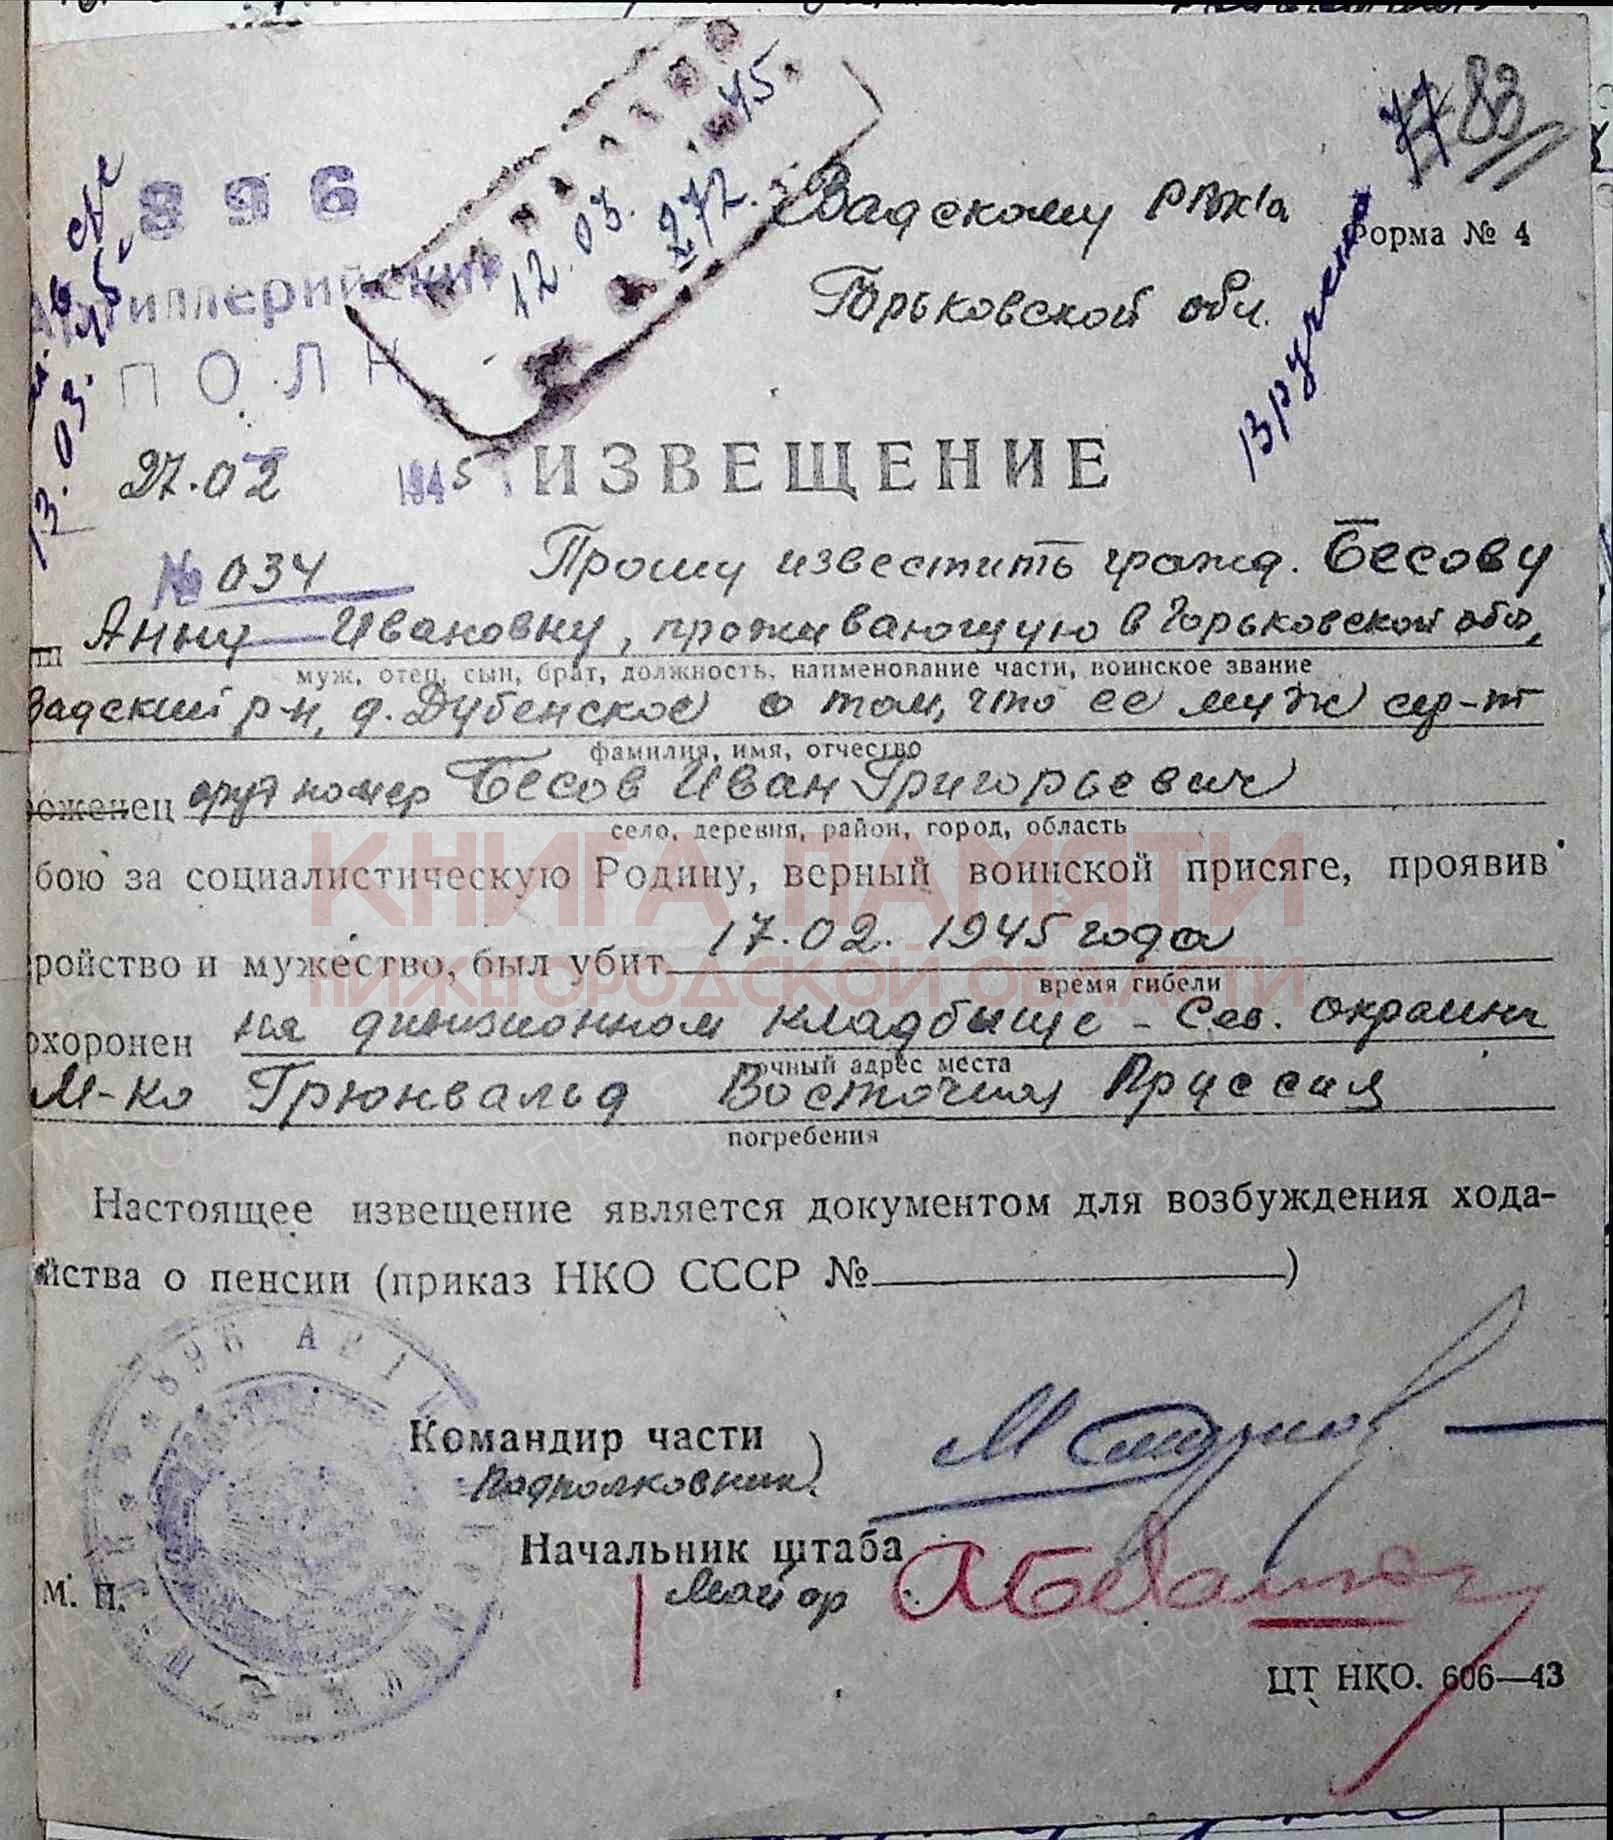 77 83
896
Артиллерийский
ПОЛК
12.03.45
272.
Вадскому РВК'а
Форма № 4
Горьковской обл.
Вручено
13.03.45
27.02 1945
ИЗВЕЩЕНИЕ
№ 034 Прошу известить гражд. Бесову
Анну Ивановну, проживающую в Горьковской обл,
муж, отец, сын, брат, должность, наименование части, воинское звание
Вадский р-н, д. Дубенское о том, что ее муж сер-т
фамилия, имя, отчество
роженец оруд номер Бесов Иван Григорьевич
село, деревня, район, город, область
бою за социалистическую Родину, верный воинской присяге, проявив
ройство и мужество, был убит 17.02.1945 года
время гибели
охоронен на дивизионном кладбище - Сев. окраина
точный адрес места
м-ко Грюнвальд Восточная Пруссия
погребения
Настоящее извещение является документом для возбуждения хода-
йства о пенсии (приказ НКО СССР №)
896 АРТИ
Командир части
подполковник
Начальник штаба
майор
М. П.
ЦТ НКО. 606—43
КНИГА ПАМЯТИ
НИЖЕГОРОДСКОЙ ОБЛАСТИ